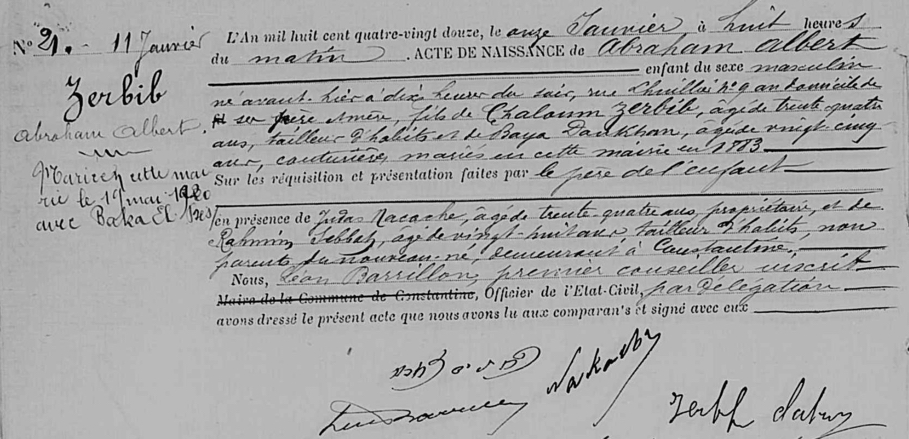 N° 21. - 11 Janvier
Zerbib
Abraham Albert.
Marié en cette mai
rie le 19 mai 1920
avec Baka El
L'An mil huit cent quatre-vingt douze, le onze Janvier à huit heures
du matin. ACTE DE NAISSANCE de Abraham Albert
enfant du sexe masculin
né avant-hier à dix heures du soir, rue n° 9 au domicile de
ses père et mère, fils de Chaloum Zerbib, âgé de trente quatre
ans, tailleur d'habits et de Baya, âgée de vingt-cinq
ans, couturière, mariés en cette mairie en 1883
Sur les réquisition et présentation faites par le père de l'enfant
en présence de Judas Nacache, âgé de trente-quatre ans, propriétaire, et de
Rahmin, âgé de vingt-huit ans tailleur d'habits, non
parents du nouveau-né, demeurant à Constantine,
Nous, Léon Barrillon, premier conseiller inscrit
Maire de la Commune de Constantine, Officier de l'Etat-Civil, par délégation
avons dressé le présent acte que nous avons lu aux comparants et signé avec eux
Zerbib